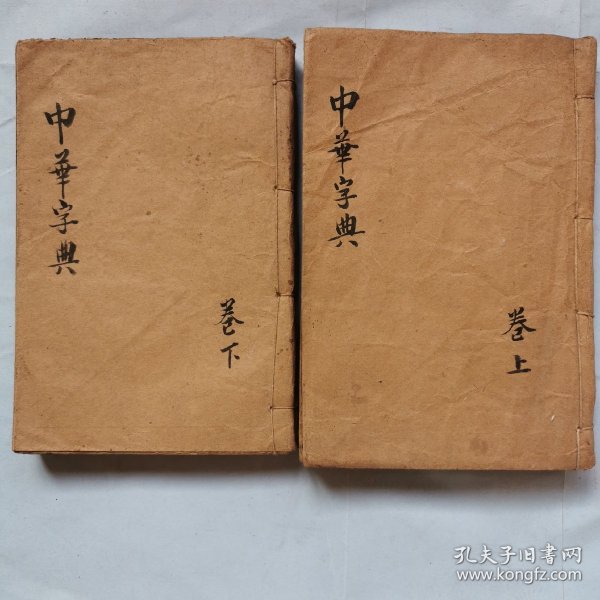 中華字典
卷下
中華字典
卷上
孔夫子旧书网
www.kongfz.com